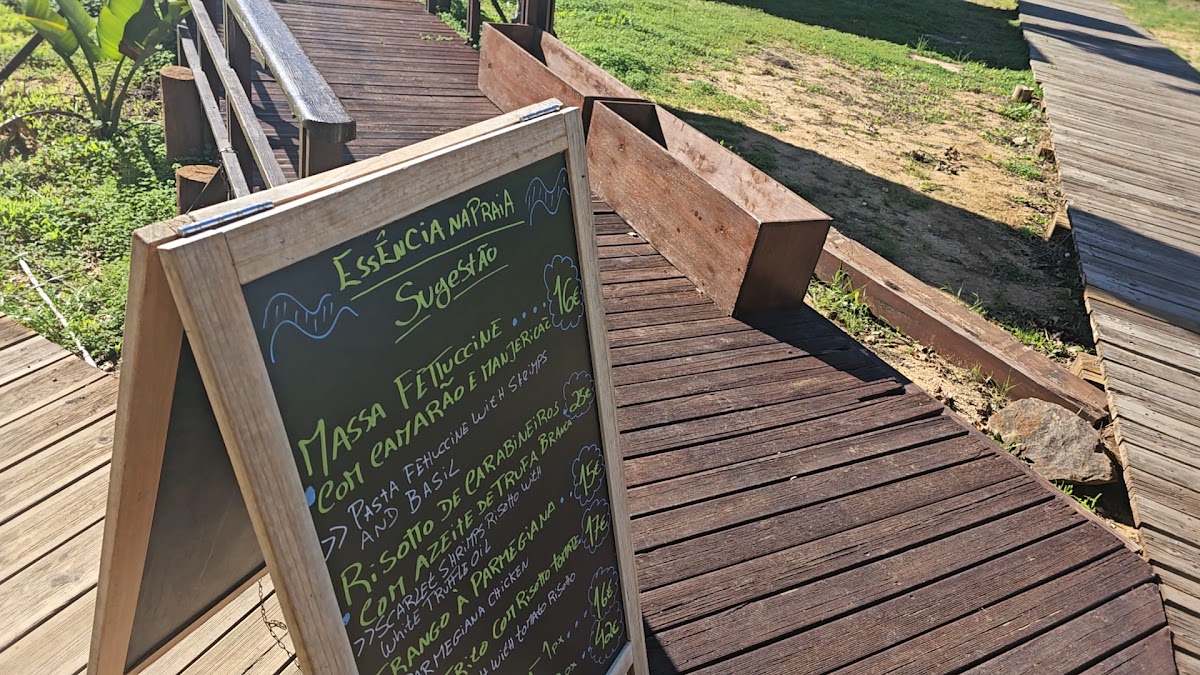 ESSÊNCIA NA PRAIA
Sugestão
MASSA FETTUCCINE 16€
COM CAMARÃO E MANJERICÃO
>> PASTA FETTUCCINE WITH SHRIMPS
AND BASIL
RISOTTO DE CARABINEIROS 25€
COM AZEITE DE TRUFA BRANCA
>> SCARLET SHRIMPS RISOTTO WITH
WHITE TRUFFLE OIL
FRANGO À PARMEGIANA 15€
PARMEGIANA CHICKEN
FRITO COM RISOTTO TOMATE 17€
WITH TOMATO RISOTTO
1PX 16€
42€